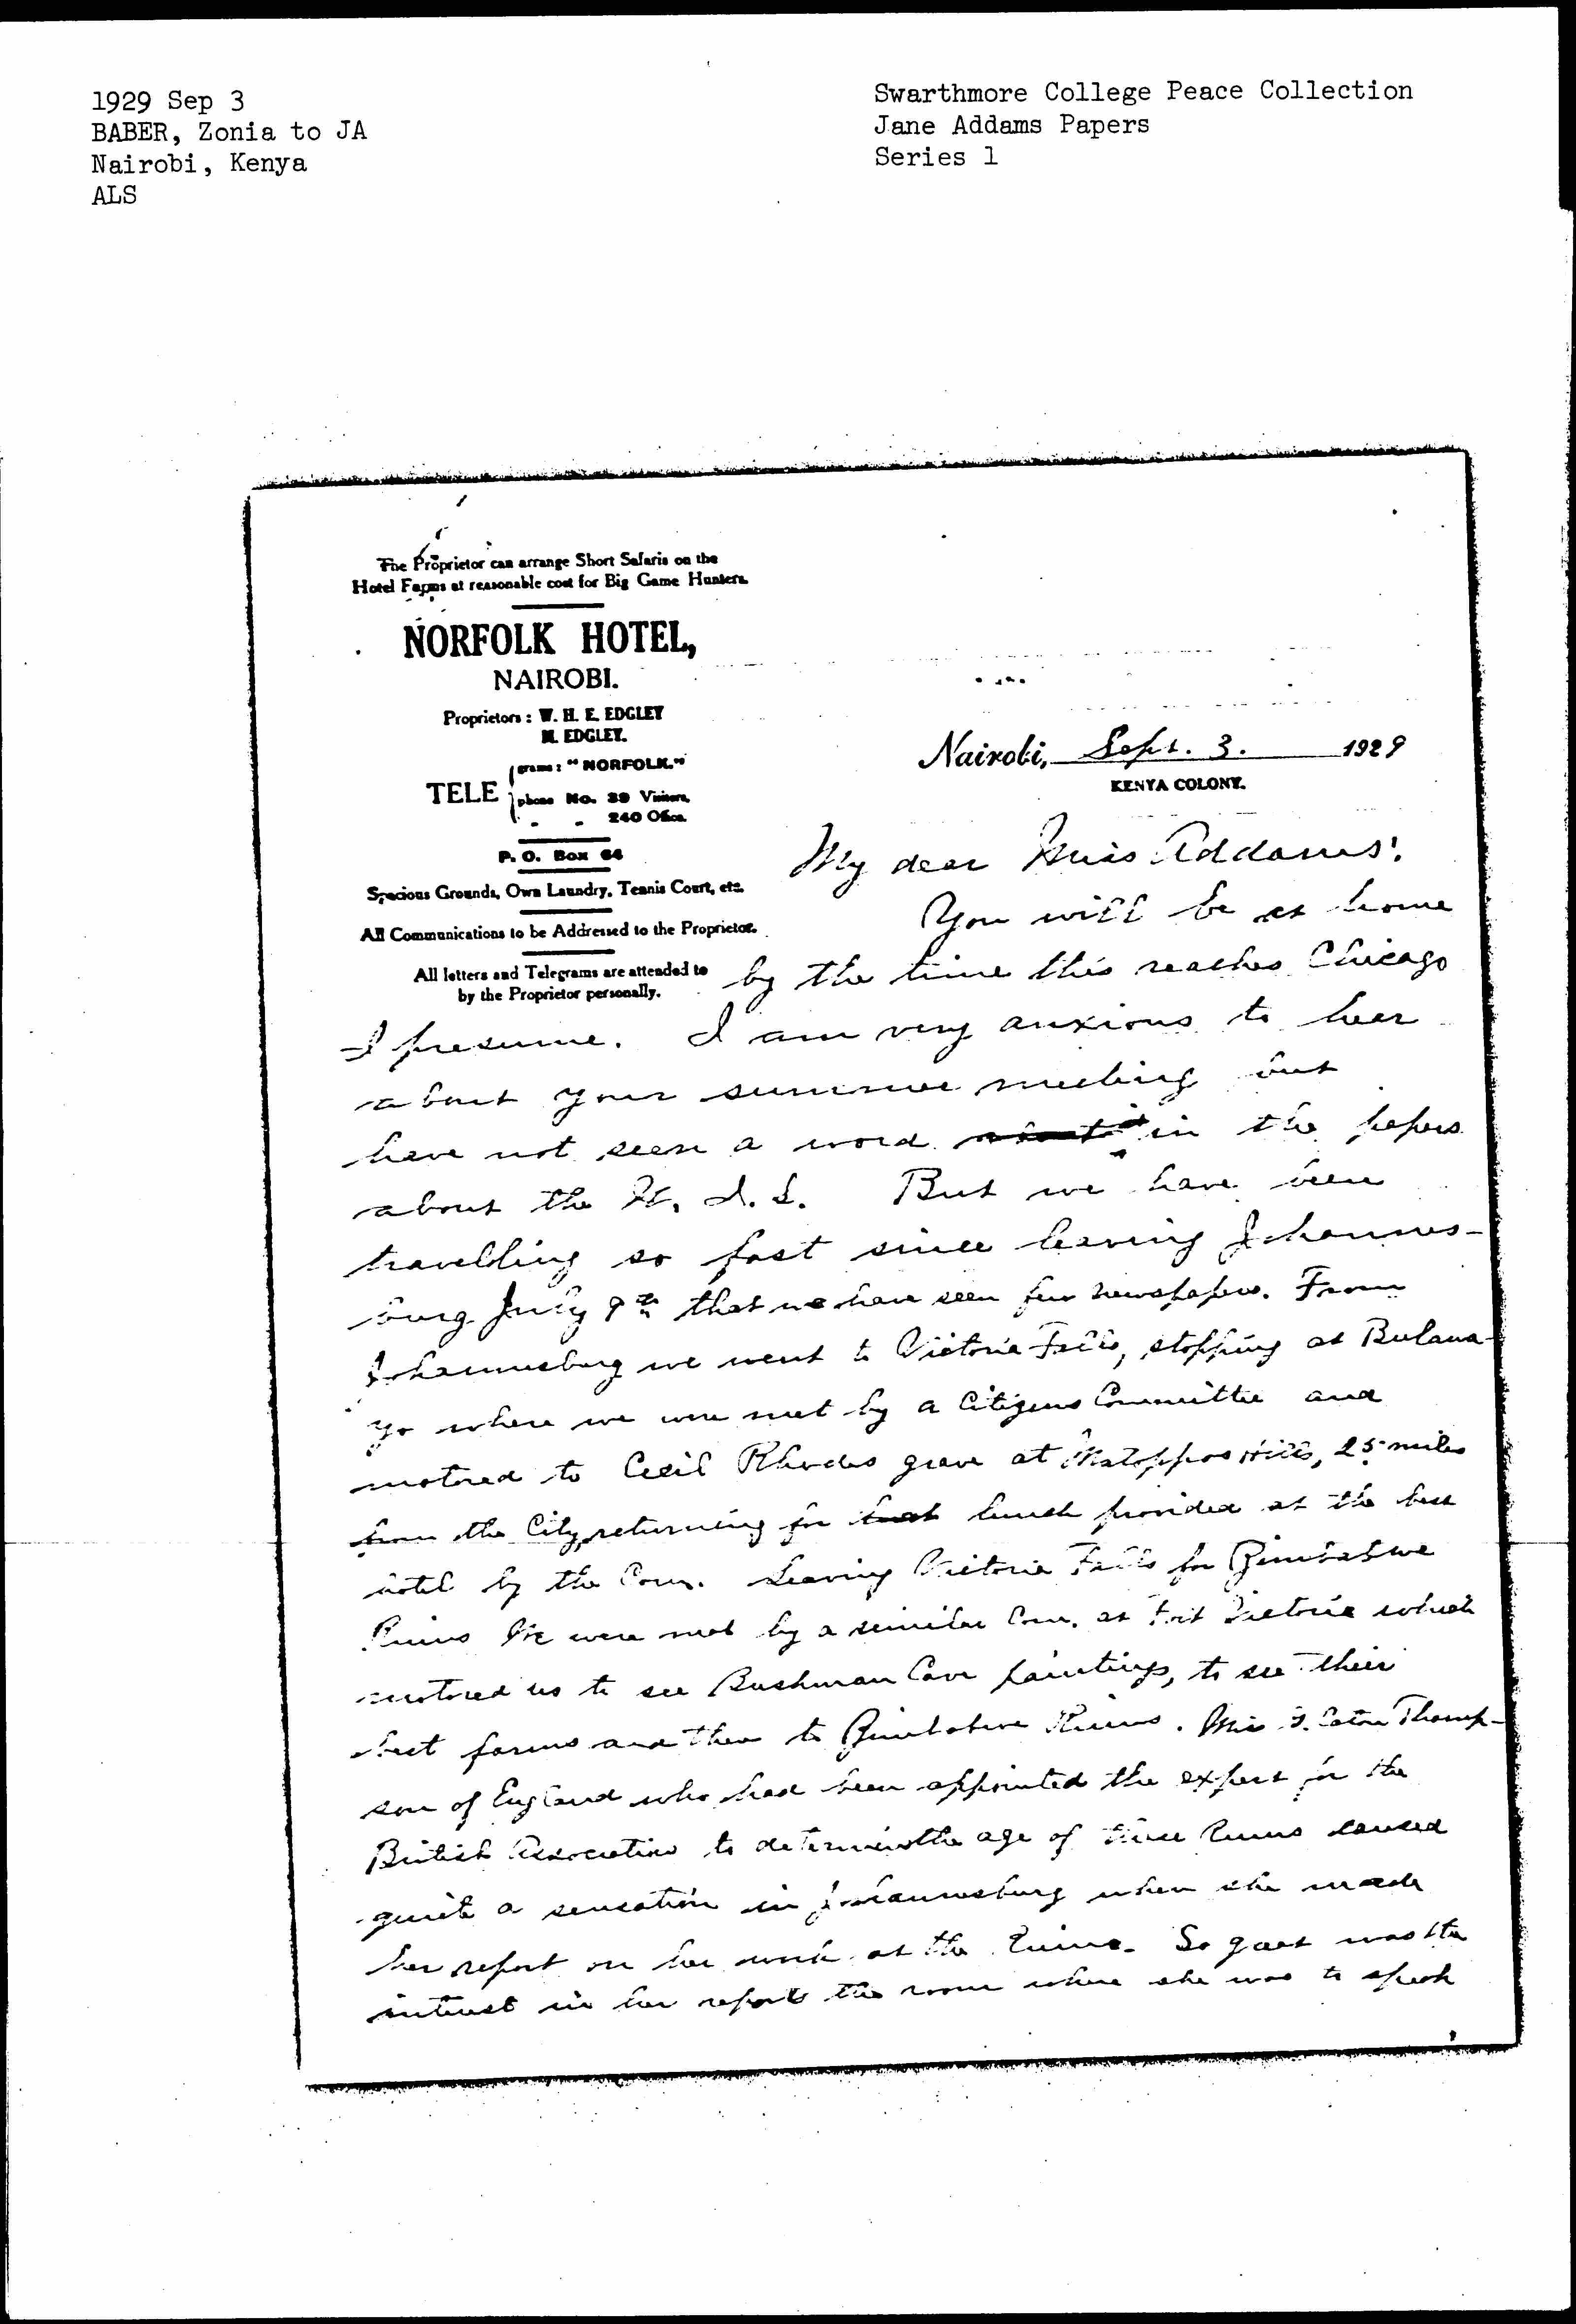 1929 Sep 3
BABER, Zonia to JA
Nairobi, Kenya
ALS
Swarthmore College Peace Collection
Jane Addams Papers
Series 1
The Proprietor can arrange Short Safaris on the
Hotel Farms at reasonable cost for Big Game Hunters.
NORFOLK HOTEL,
NAIROBI.
Proprietors: W. H. E. EDGLEY
M. EDGLEY.
TELE grams: "NORFOLK."
phone No. 39 Visitors,
" " 240 Office.
P. O. Box 64
Spacious Grounds, Own Laundry, Tennis Court, etc.
All Communications to be Addressed to the Proprietor.
All letters and Telegrams are attended to
by the Proprietor personally.
Nairobi, Sept. 3. 1929
KENYA COLONY.
My dear Miss Addams:
You will be at home
by the time this reaches Chicago
I presume. I am very anxious to hear
about your summer meeting but
have not seen a word in the papers
about the W. I. L. But we have been
travelling so fast since leaving Johannes-
burg July 9th that we have seen few newspapers. From
Johannesburg we went to Victoria Falls, stopping at Bulawa-
yo where we were met by a Citizens Committee and
motored to Cecil Rhodes grave at Matoppos Hills, 25 miles
from the City, returning for lunch provided at the best
hotel by the Com. Leaving Victoria Falls for Zimbabwe
Ruins We were met by a similar Com. at Fort Victoria which
motored us to see Bushman Cave paintings, to see their
best farms and then to Zimbabwe Ruins. Miss G. Caton Thomp-
son of England who had been appointed the expert for the
British Association to determine the age of these Ruins caused
quite a sensation in Johannesburg when she made
her report on her work at the Ruins. So great was the
interest in her reports the room where she was to speak